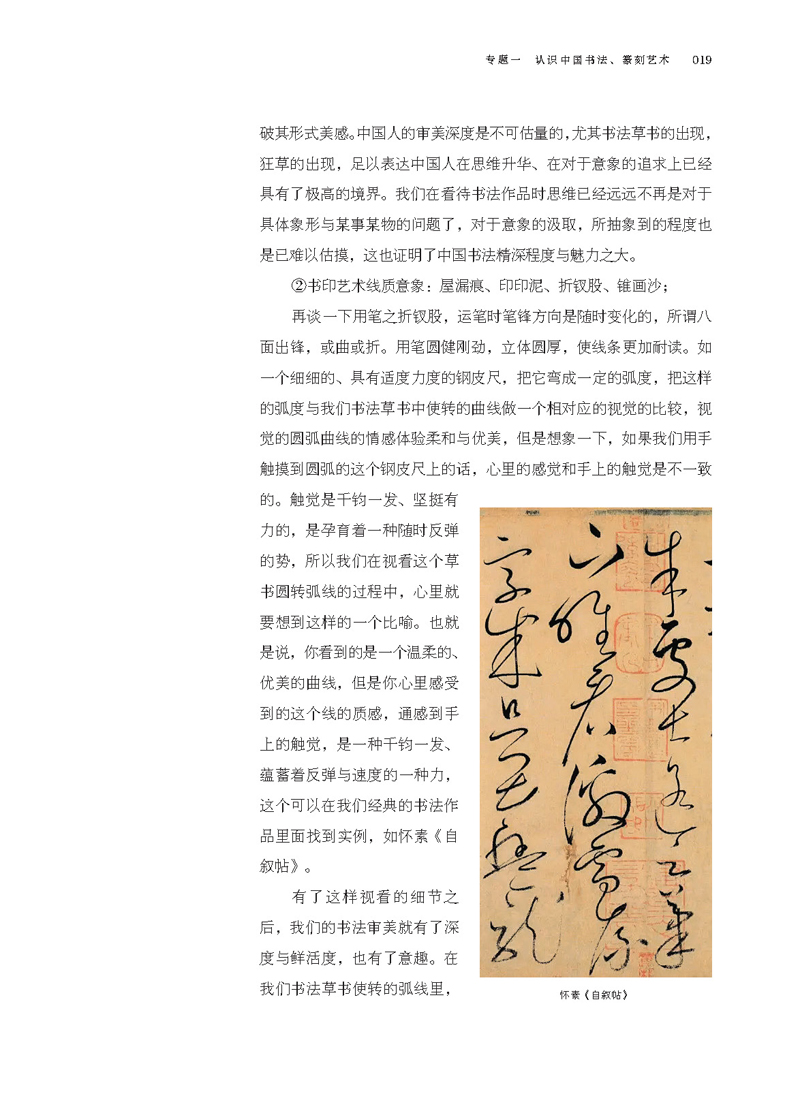 专题一 认识中国书法、篆刻艺术 019
破其形式美感。中国人的审美深度是不可估量的，尤其书法草书的出现，
狂草的出现，足以表达中国人在思维升华、在对于意象的追求上已经
具有了极高的境界。我们在看待书法作品时思维已经远远不再是对于
具体象形与某事某物的问题了，对于意象的汲取，所抽象到的程度也
是已难以估摸，这也证明了中国书法精深程度与魅力之大。
②书印艺术线质意象：屋漏痕、印印泥、折钗股、锥画沙；
再谈一下用笔之折钗股，运笔时笔锋方向是随时变化的，所谓八
面出锋，或曲或折。用笔圆健刚劲，立体圆厚，使线条更加耐读。如
一个细细的、具有适度力度的钢皮尺，把它弯成一定的弧度，把这样
的弧度与我们书法草书中使转的曲线做一个相对应的视觉的比较，视
觉的圆弧曲线的情感体验柔和与优美，但是想象一下，如果我们用手
触摸到圆弧的这个钢皮尺上的话，心里的感觉和手上的触觉是不一致
的。触觉是千钧一发、坚挺有
力的，是孕育着一种随时反弹
的势，所以我们在视看这个草
书圆转弧线的过程中，心里就
要想到这样的一个比喻。也就
是说，你看到的是一个温柔的、
优美的曲线，但是你心里感受
到的这个线的质感，通感到手
上的触觉，是一种千钧一发、
蕴蓄着反弹与速度的一种力，
这个可以在我们经典的书法作
品里面找到实例，如怀素《自
叙帖》。
有了这样视看的细节之
后，我们的书法审美就有了深
度与鲜活度，也有了意趣。在
我们书法草书使转的弧线里，
怀素《自叙帖》